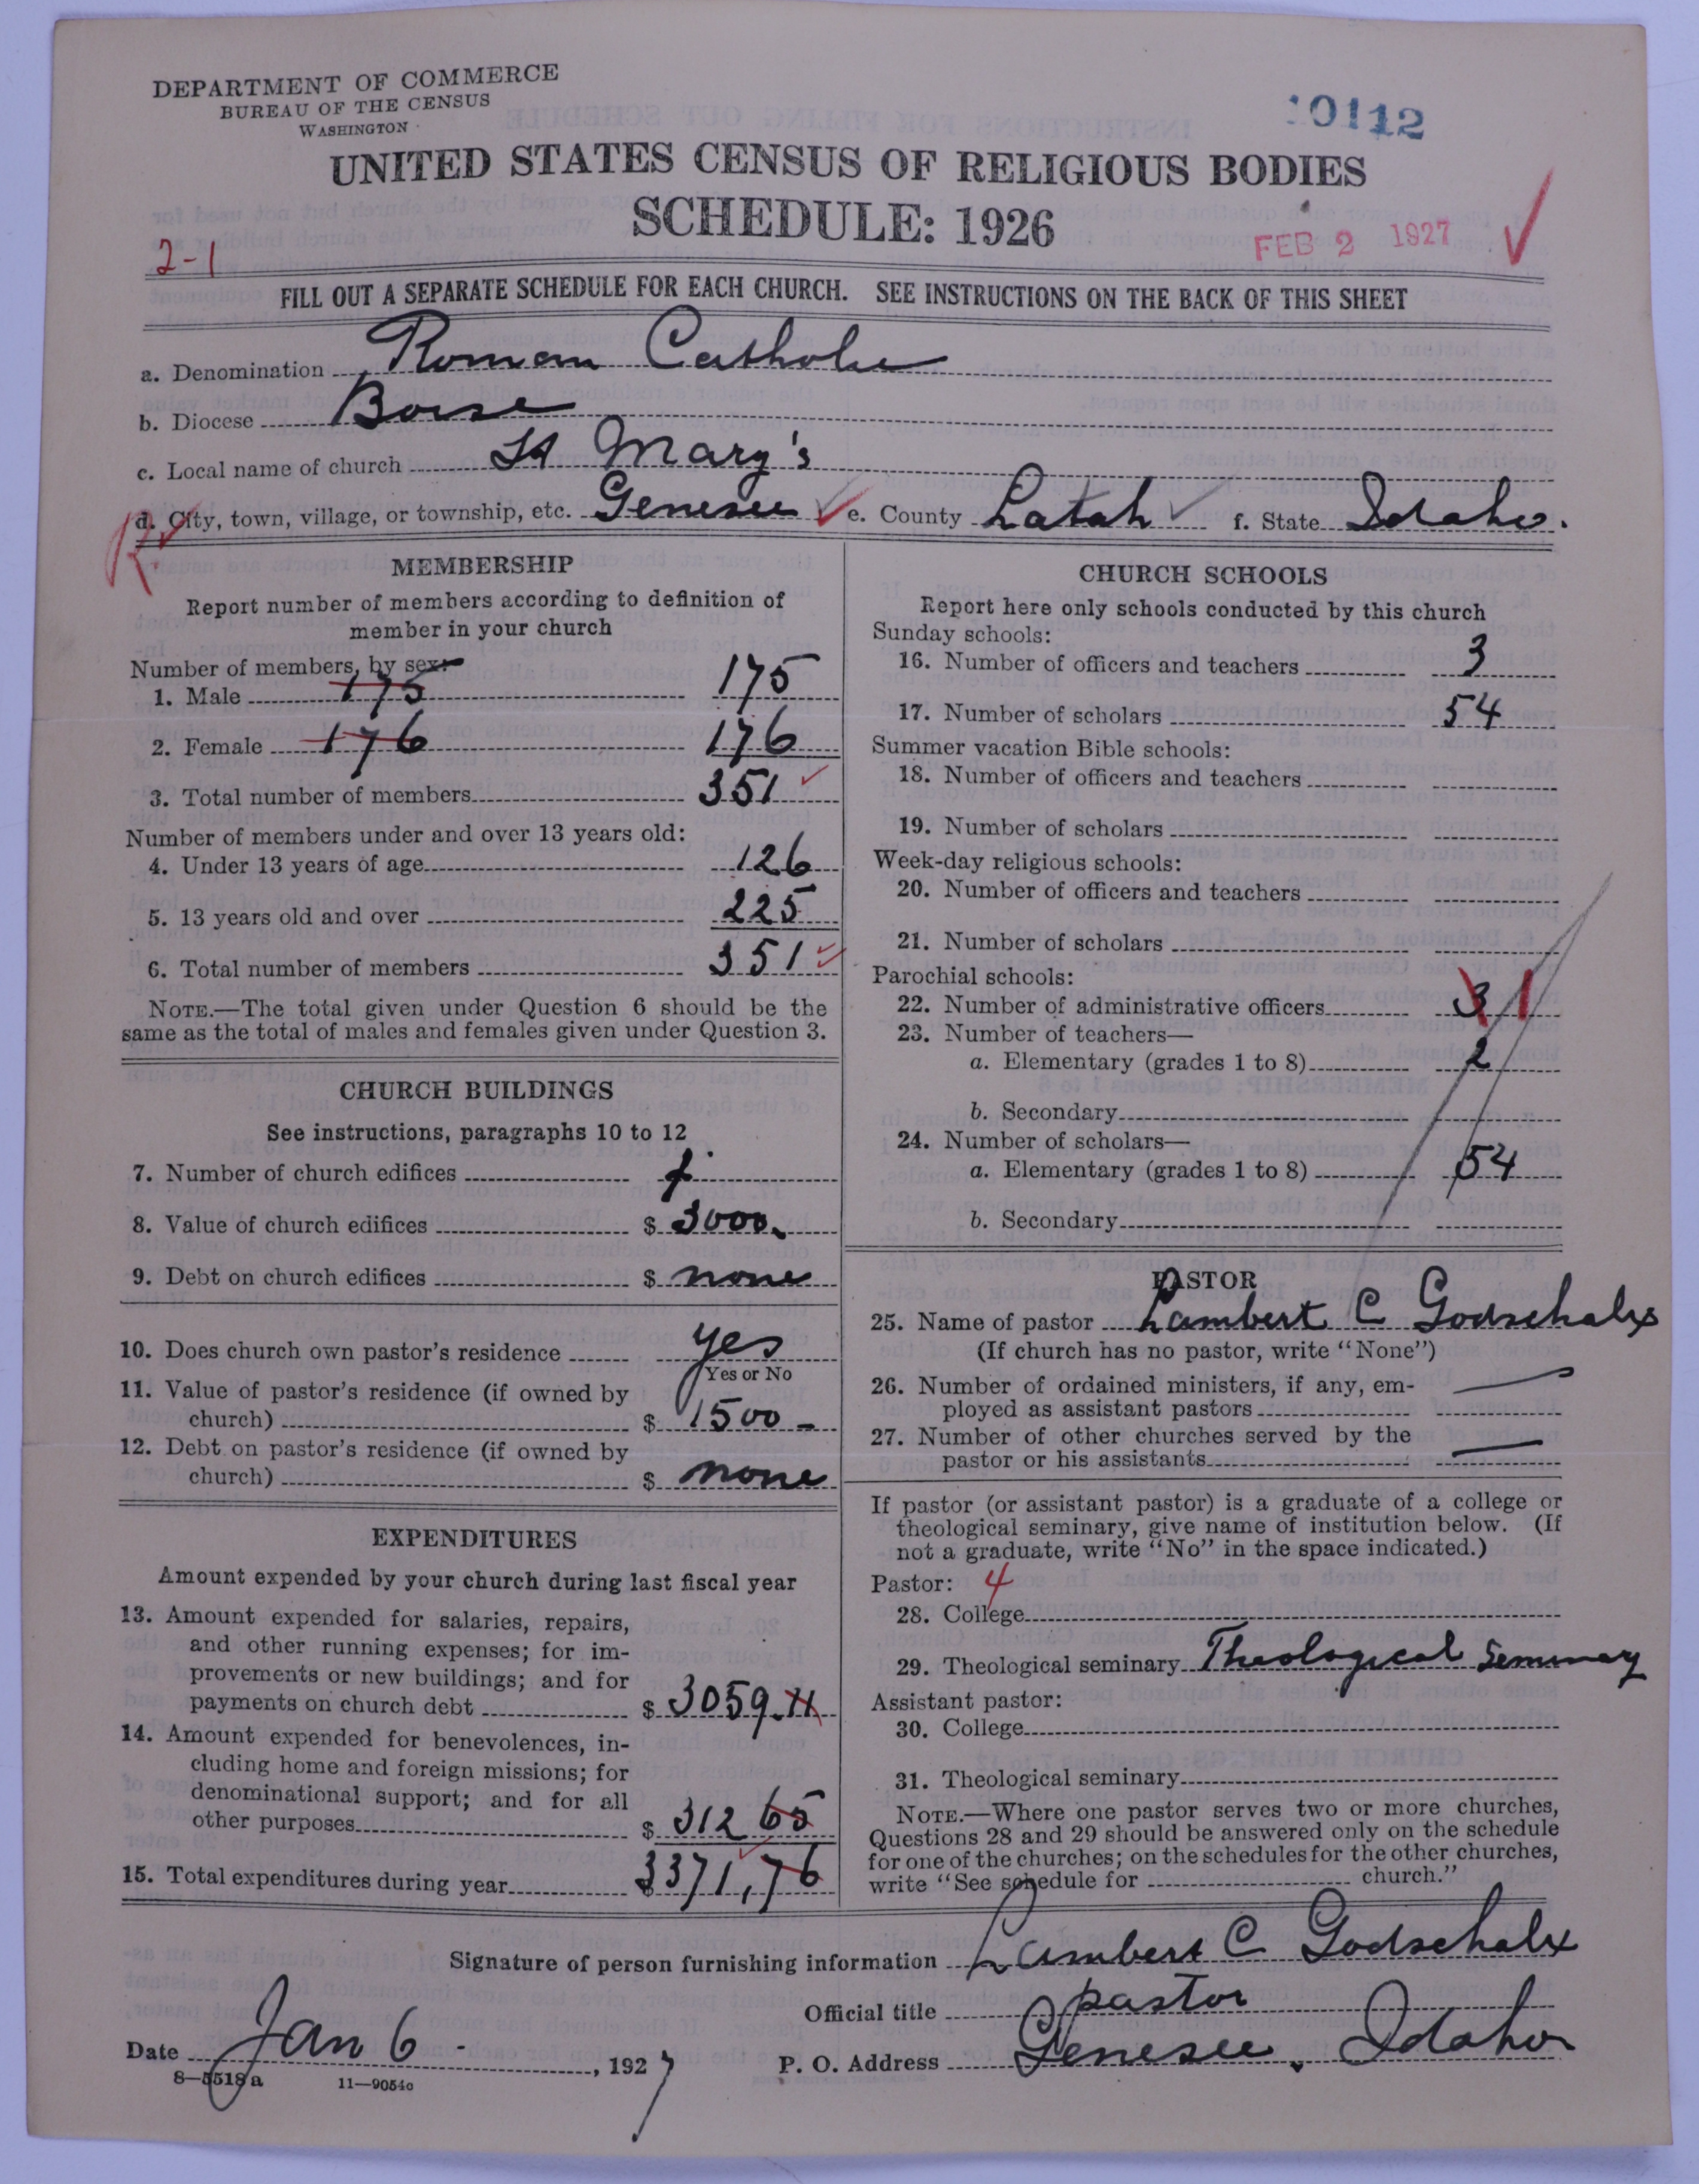 DEPARTMENT OF COMMERCE
BUREAU OF THE CENSUS
WASHINGTON
10112
UNITED STATES CENSUS OF RELIGIOUS BODIES
SCHEDULE: 1926
FEB 2 1927
2-1
FILL OUT A SEPARATE SCHEDULE FOR EACH CHURCH. SEE INSTRUCTIONS ON THE BACK OF THIS SHEET
a. Denomination Roman Catholic
b. Diocese Boise
c. Local name of church St Mary's
d. City, town, village, or township, etc. Genesee e. County Latah f. State Idaho.
R
MEMBERSHIP
Report number of members according to definition of
member in your church
Number of members, by sex:
1. Male 175 175
2. Female 176 176
3. Total number of members 351
Number of members under and over 13 years old:
4. Under 13 years of age 126
5. 13 years old and over 225
6. Total number of members 351
NOTE.—The total given under Question 6 should be the
same as the total of males and females given under Question 3.
CHURCH BUILDINGS
See instructions, paragraphs 10 to 12
7. Number of church edifices 1
8. Value of church edifices $ 3000.
9. Debt on church edifices $ none
10. Does church own pastor's residence yes
Yes or No
11. Value of pastor's residence (if owned by
church) $ 1500 –
12. Debt on pastor's residence (if owned by
church) $ none
EXPENDITURES
Amount expended by your church during last fiscal year
13. Amount expended for salaries, repairs,
and other running expenses; for im-
provements or new buildings; and for
payments on church debt $ 3059.11
14. Amount expended for benevolences, in-
cluding home and foreign missions; for
denominational support; and for all
other purposes $ 312 65
15. Total expenditures during year $ 3371,76
CHURCH SCHOOLS
Report here only schools conducted by this church
Sunday schools:
16. Number of officers and teachers 3
17. Number of scholars 54
Summer vacation Bible schools:
18. Number of officers and teachers
19. Number of scholars
Week-day religious schools:
20. Number of officers and teachers
21. Number of scholars
Parochial schools:
22. Number of administrative officers 3 1
23. Number of teachers—
a. Elementary (grades 1 to 8) 2
b. Secondary
24. Number of scholars—
a. Elementary (grades 1 to 8) 54
b. Secondary
PASTOR
25. Name of pastor Lambert C Godschalx
(If church has no pastor, write "None")
26. Number of ordained ministers, if any, em-
ployed as assistant pastors —
27. Number of other churches served by the
pastor or his assistants —
If pastor (or assistant pastor) is a graduate of a college or
theological seminary, give name of institution below. (If
not a graduate, write "No" in the space indicated.)
Pastor: 4
28. College
29. Theological seminary Theological Seminary
Assistant pastor:
30. College
31. Theological seminary
NOTE.—Where one pastor serves two or more churches,
Questions 28 and 29 should be answered only on the schedule
for one of the churches; on the schedules for the other churches,
write "See schedule for church."
Signature of person furnishing information Lambert C Godschalx
Official title pastor
Date Jan 6 - , 1927 P. O. Address Genesee, Idaho
8—5518a 11—9054c